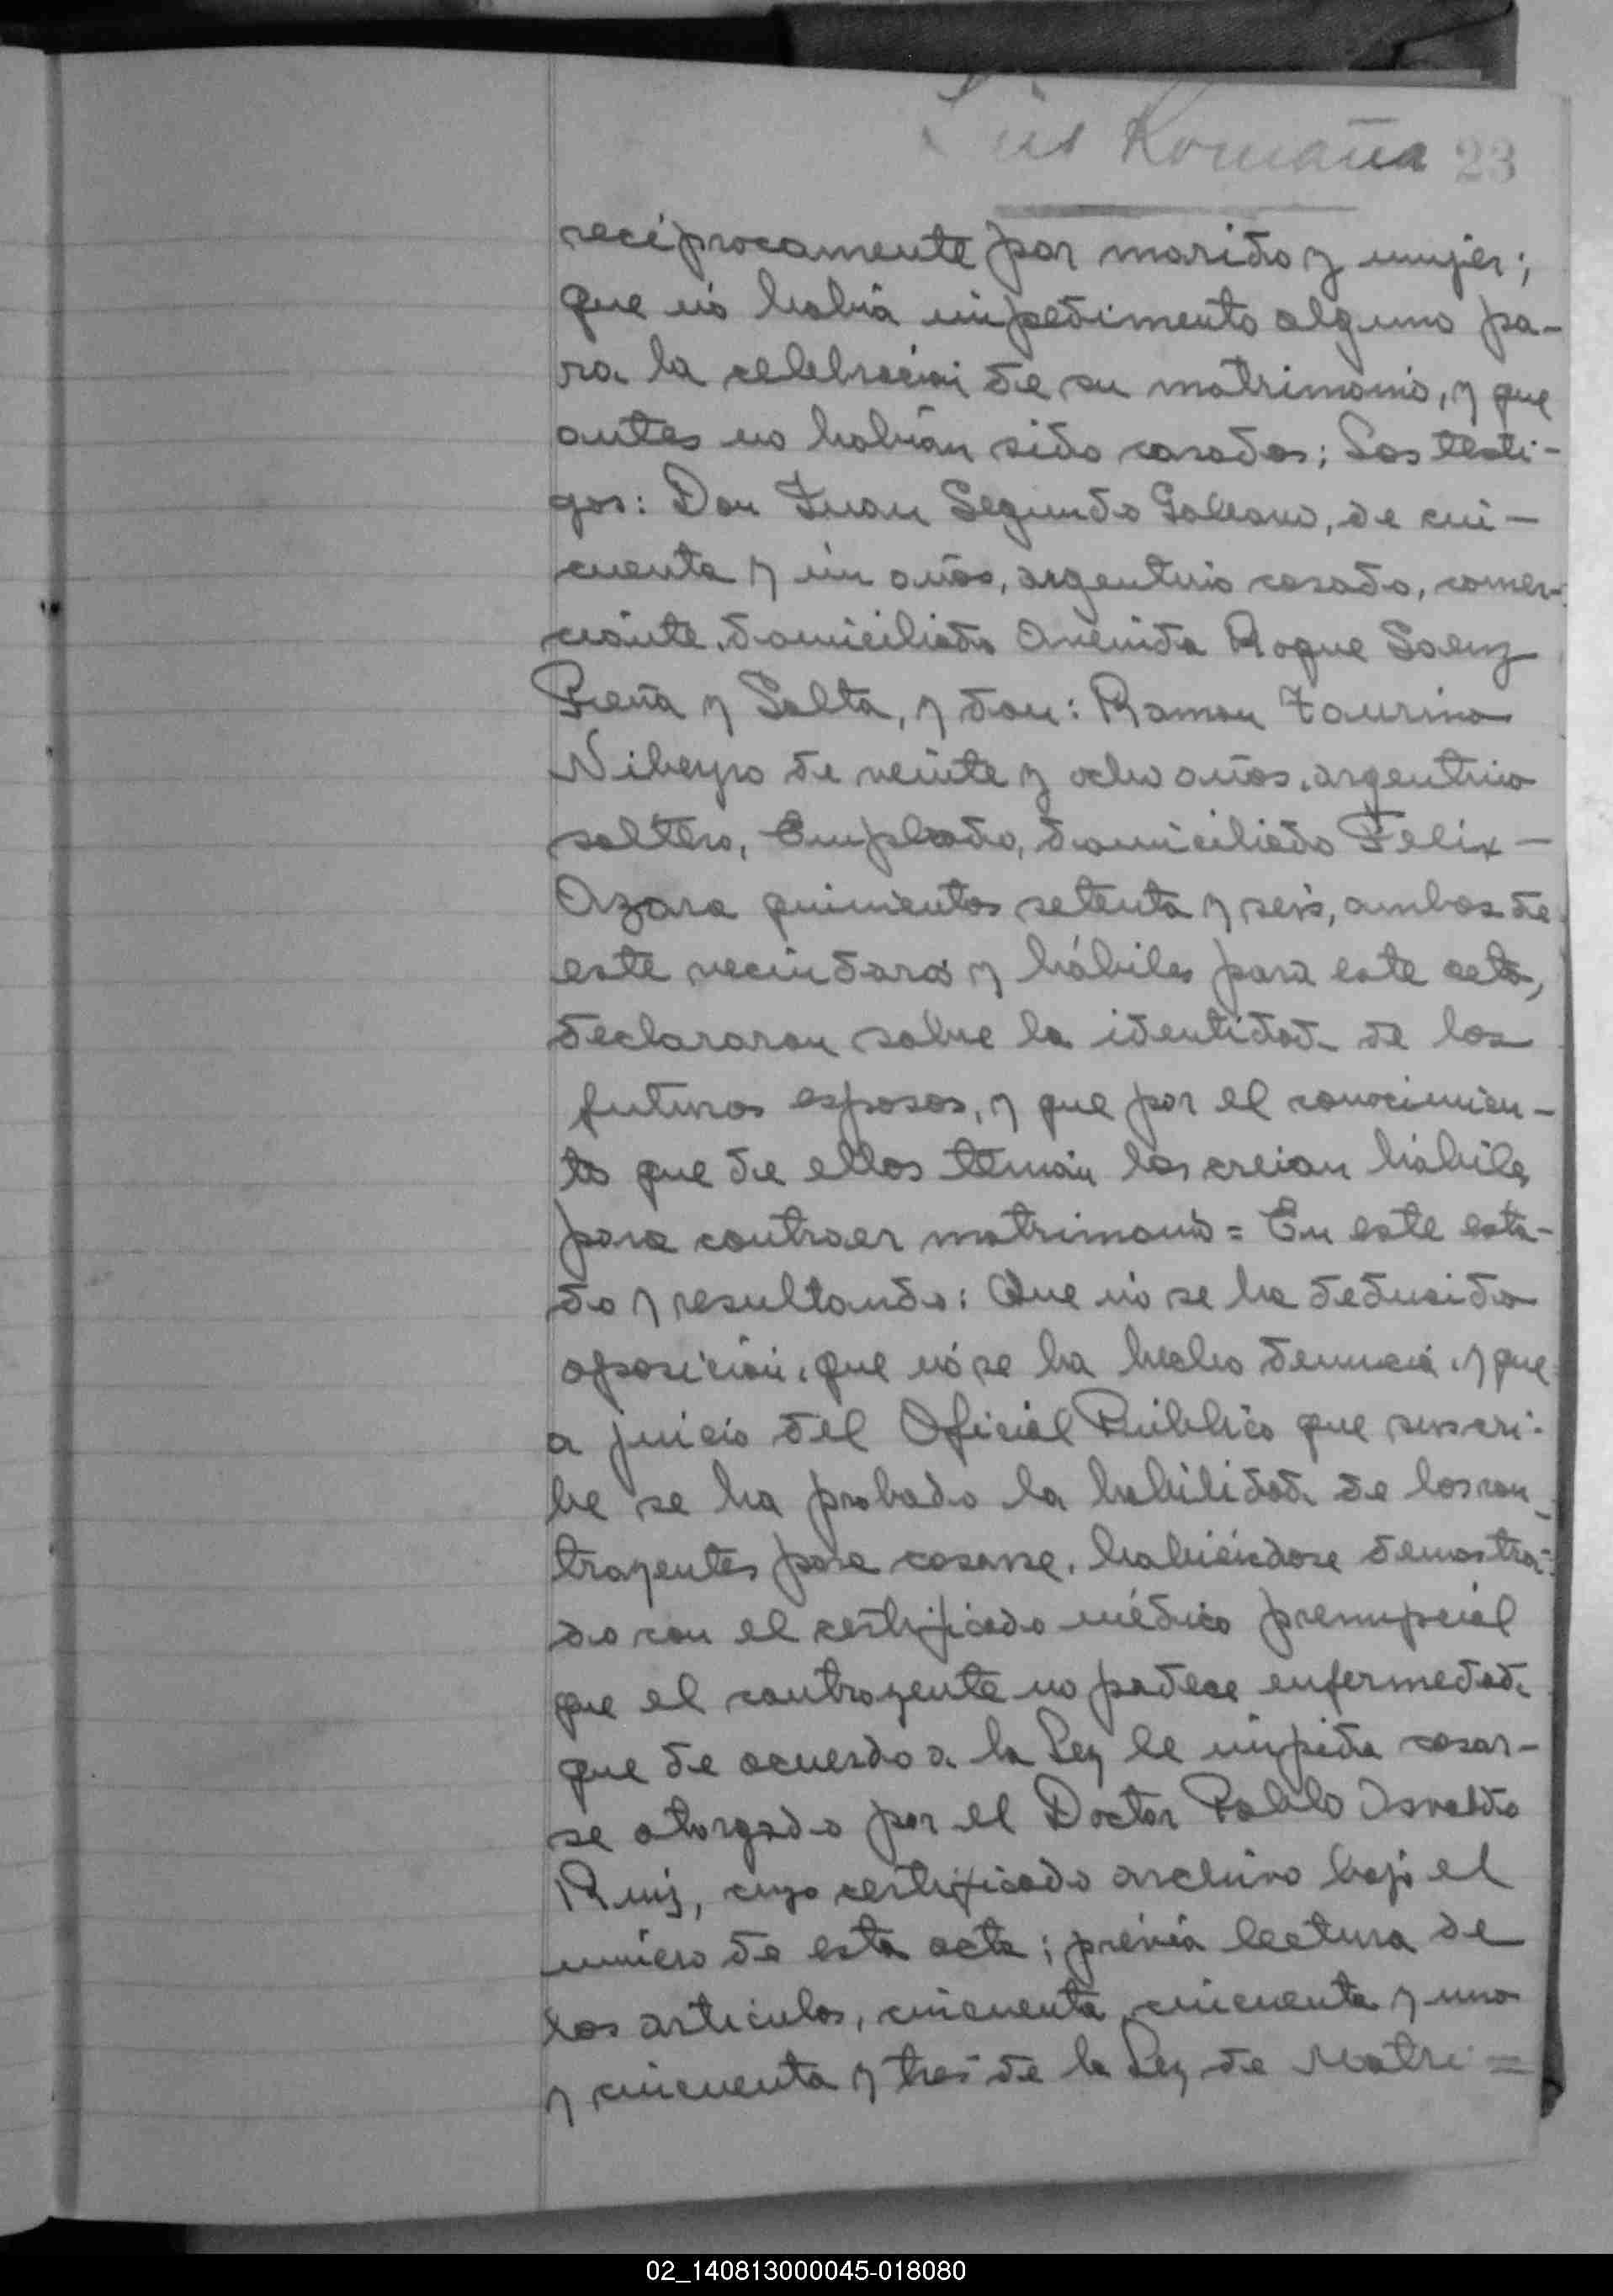 Luis Romaña 23
reciprocamente por marido y mujer;
que nó había impedimento alguno pa-
ra la celebración de su matrimonio, y que
antes no habían sido casados; Los testi-
gos: Don Juan Segundo Galeano, de cin-
cuenta y ún años, argentino casado, comer-
ciante, domiciliado Avenida Roque Saenz
Peña y Salta, y don: Ramon Taurino
Niveyro de veinte y ocho años, argentino
soltero, Empleado, domiciliado Felix-
Azara quinientos setenta y seis, ambos de
este vecindario y hábiles para este acto,
declararon sobre la identidad de los
futuros esposos, y que por el conocimien-
to que de ellos tenían los creian hábiles
para contraer matrimonio = En este esta-
do y resultando: Que nó se ha deducido
oposición, que nó se ha hecho denuncia, y que
a juicio del Oficial Público que suscri-
be se ha probado la habilidad de los con-
trayentes para casarse, habiéndose demostra-
do con el certificado médico prenupcial
que el contrayente no padece enfermedad
que de acuerdo a la Ley le impida casar-
se otorgado por el Doctor Pablo Osvaldo
Ruiz, cuyo certificado archivo bajo el
número de esta acta; prévia lectura de
los artículos, cincuenta, cincuenta y uno
y cincuenta y tres de la Ley de Matri=
02_140813000045-018080